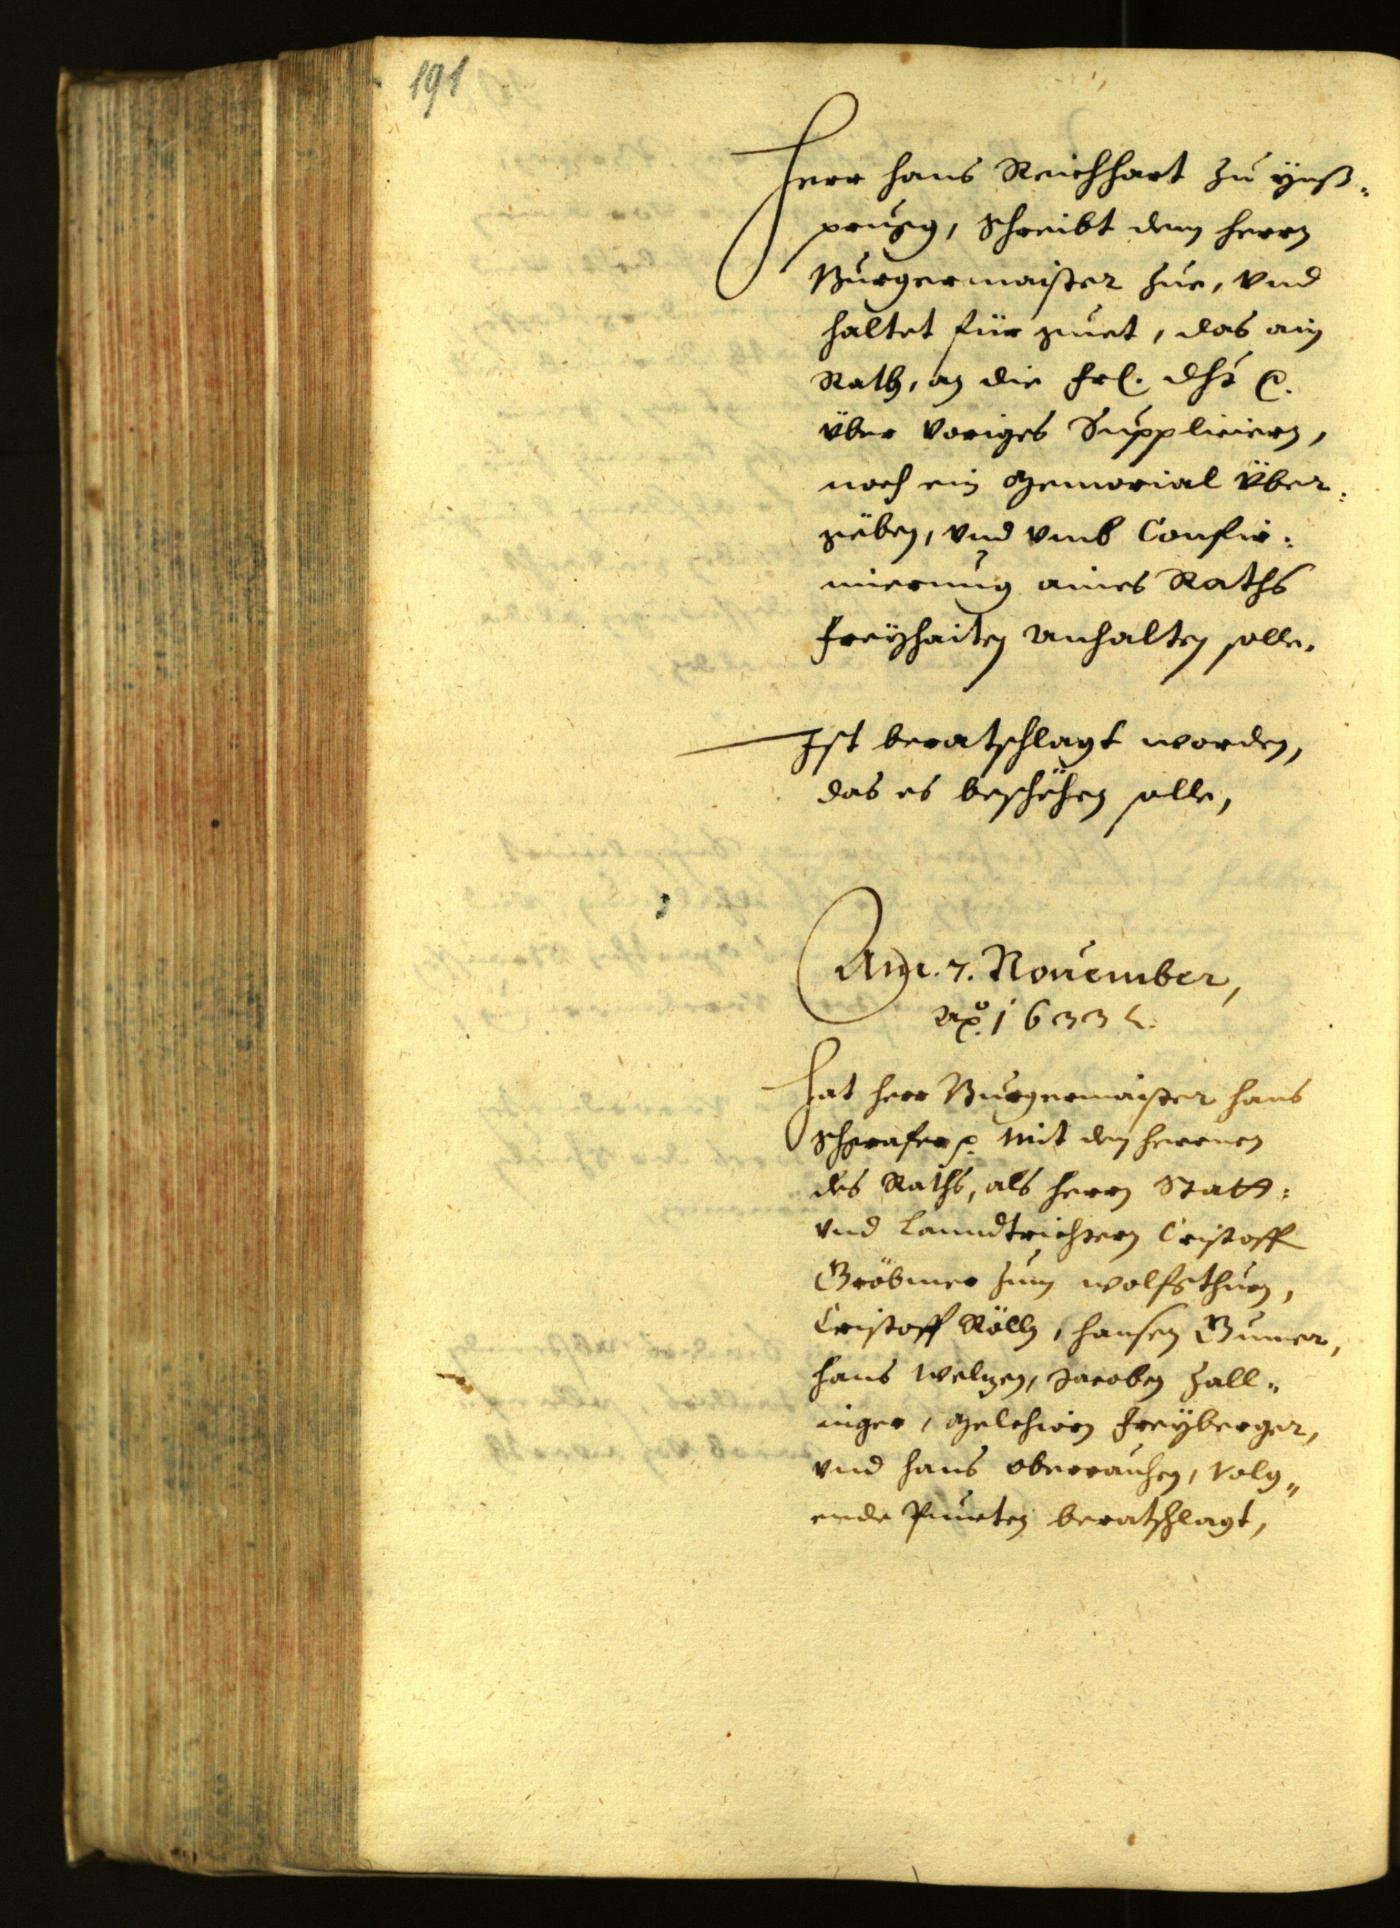 191
Herr Hans Reichhart zu Ynß„
prugg, Schreibt dem herrn
Burgermaister zue, vnd
haltet für guet, das ain
Rath, an die Frl. Dht e.
über voriges Supplicieren,
noch ein Memorial über:
gëben, vnd vmb Confir:
mierung aines Raths
Freÿhaiten anhalten solle.
Ist beratschlagt worden,
das es beschëhen solle,
Adi. 7. Nouember,
aō. 1633.
Hat herr Burgermaister Hans
mit den herrnen
des Raths, als herrn Statt:
vnd Lanndtrichtern Cristoff
Gröbmer zum wolfsthurn,
Cristoff Röll, Hansen Gumer,
Hans Jacoben Zall„
inger, Melchiorn Freÿberger,
vnd Hans Oberrauchen, volg„
ende Puncten beratschlagt,